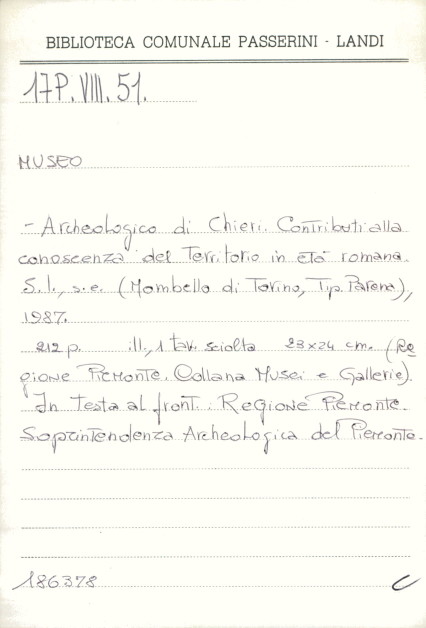 BIBLIOTECA COMUNALE PASSERINI - LANDI
17P.VIII.51.
MUSEO
- Archeologico di Chieri. Contributi alla
conoscenza del Territorio in età romana.
S.l., s.e. (Mombello di Torino, Tip. Parena),
1987.
212 p. ill., 1 tav. sciolta 23x24 cm. (Re
gione Piemonte. Collana Musei e Gallerie).
In testa al front.: Regione Piemonte.
Soprintendenza Archeologica del Piemonte.
186378